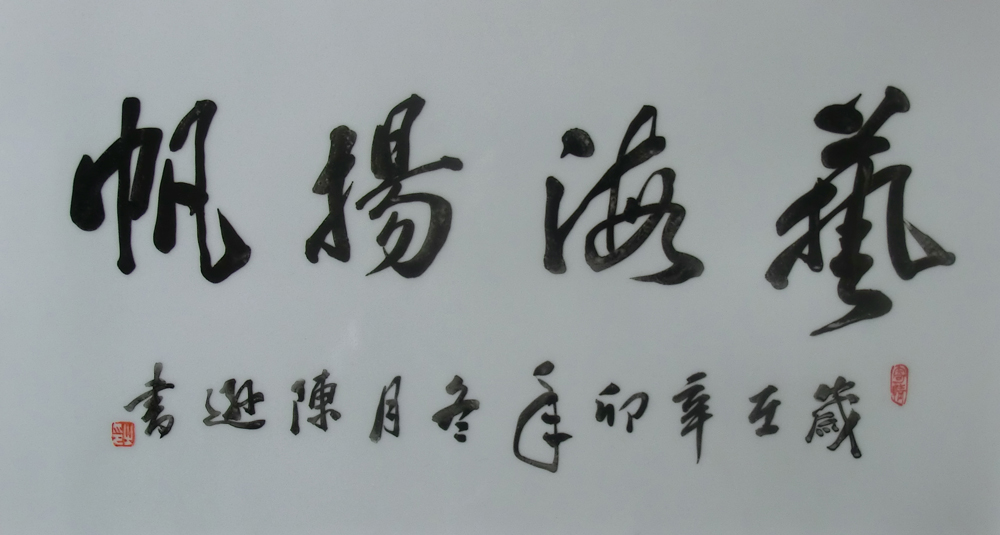 藝海揚帆
歲在辛卯年冬月陳遜書